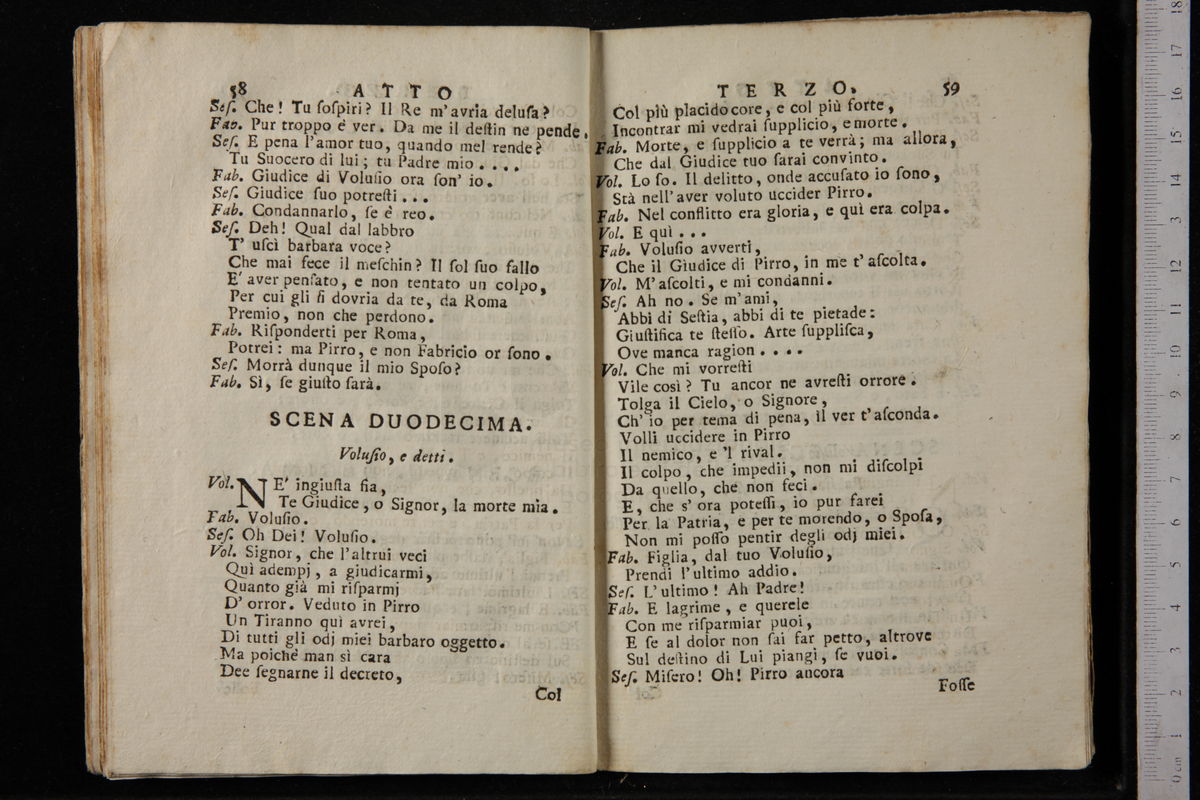 58 ATTO
Seſ. Che! Tu ſoſpiri? Il Re m'avria deluſa?
Fab. Pur troppo è ver. Da me il deſtin ne pende.
Seſ. E pena l'amor tuo, quando mel rende?
Tu Suocero di lui; tu Padre mio....
Fab. Giudice di Voluſio ora ſon' io.
Seſ. Giudice ſuo potreſti...
Fab. Condannarlo, ſe è reo.
Seſ. Deh! Qual dal labbro
T' uſcì barbara voce?
Che mai fece il meſchin? Il ſol ſuo fallo
E' aver penſato, e non tentato un colpo,
Per cui gli ſi dovria da te, da Roma
Premio, non che perdono.
Fab. Riſponderti per Roma,
Potrei: ma Pirro, e non Fabricio or ſono.
Seſ. Morrà dunque il mio Spoſo?
Fab. Sì, ſe giuſto ſarà.
SCENA DUODECIMA.
Voluſio, e detti.
Vol. NE' ingiuſta ſia,
Te Giudice, o Signor, la morte mia.
Fab. Voluſio.
Seſ. Oh Dei! Voluſio.
Vol. Signor, che l'altrui veci
Quì adempj, a giudicarmi,
Quanto già mi riſparmj
D' orror. Veduto in Pirro
Un Tiranno quì avrei,
Di tutti gli odj miei barbaro oggetto.
Ma poichè man sì cara
Dee ſegnarne il decreto,
Col
TERZO. 59
Col più placido core, e col più forte,
Incontrar mi vedrai ſupplicio, e morte.
Fab. Morte, e ſupplicio a te verrà; ma allora,
Che dal Giudice tuo ſarai convinto.
Vol. Lo ſo. Il delitto, onde accuſato io ſono,
Stà nell'aver voluto uccider Pirro.
Fab. Nel conflitto era gloria, e quì era colpa.
Vol. E quì...
Fab. Voluſio avverti,
Che il Giudice di Pirro, in me t'aſcolta.
Vol. M'aſcolti, e mi condanni.
Seſ. Ah no. Se m'ami,
Abbi di Seſtia, abbi di te pietade:
Giuſtifica te ſteſſo. Arte ſuppliſca,
Ove manca ragion....
Vol. Che mi vorreſti
Vile così? Tu ancor ne avreſti orrore.
Tolga il Cielo, o Signore,
Ch' io per tema di pena, il ver t'aſconda.
Volli uccidere in Pirro
Il nemico, e 'l rival.
Il colpo, che impedii, non mi diſcolpi
Da quello, che non feci.
E, che s' ora poteſſi, io pur farei
Per la Patria, e per te morendo, o Spoſa,
Non mi poſſo pentir degli odj miei.
Fab. Figlia, dal tuo Voluſio,
Prendi l'ultimo addio.
Seſ. L'ultimo! Ah Padre!
Fab. E lagrime, e querele
Con me riſparmiar puoi,
E ſe al dolor non ſai far petto, altrove
Sul deſtino di Lui piangi, ſe vuoi.
Seſ. Miſero! Oh! Pirro ancora
Foſſe
0 cm 1 2 3 4 5 6 7 8 9 10 11 12 13 14 15 16 17 18